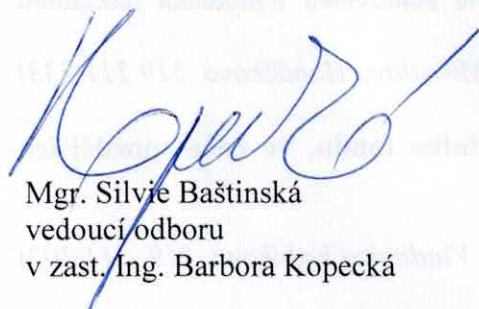 Mgr. Silvie Baštinská
vedoucí odboru
v zast. Ing. Barbora Kopecká